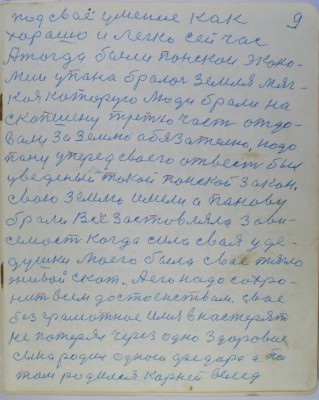 9
под своё умение как
хорашо и легко сей час
А тогда были понскои Эконо-
мии упона бралог Земля мяг-
кая которую люди брали на
скопщену третю часть отдо-
вали за Землю обязательно, надо
пану уперед своего отвест был
уведеный такой понской Закон.
свою Землю имели а панову
брали Всё Застовляла Зави-
семость когда сила свая у де-
душки моего была своё тягло
живой скот. Аего надо сохро-
нить всем достоенствам. свае
без грамотное имя в настерят
не потерял через одно Здоровие
сына родил одного Федора а по
том родился Карней вслед